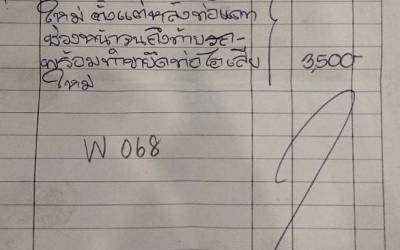 ใหม่ ตั้งแต่หลังท่อแคท
ช่วงหน้าจนถึงท้ายรถ-
พร้อมทำขายึดท่อไอเสีย 3,500-
ใหม่
W 068